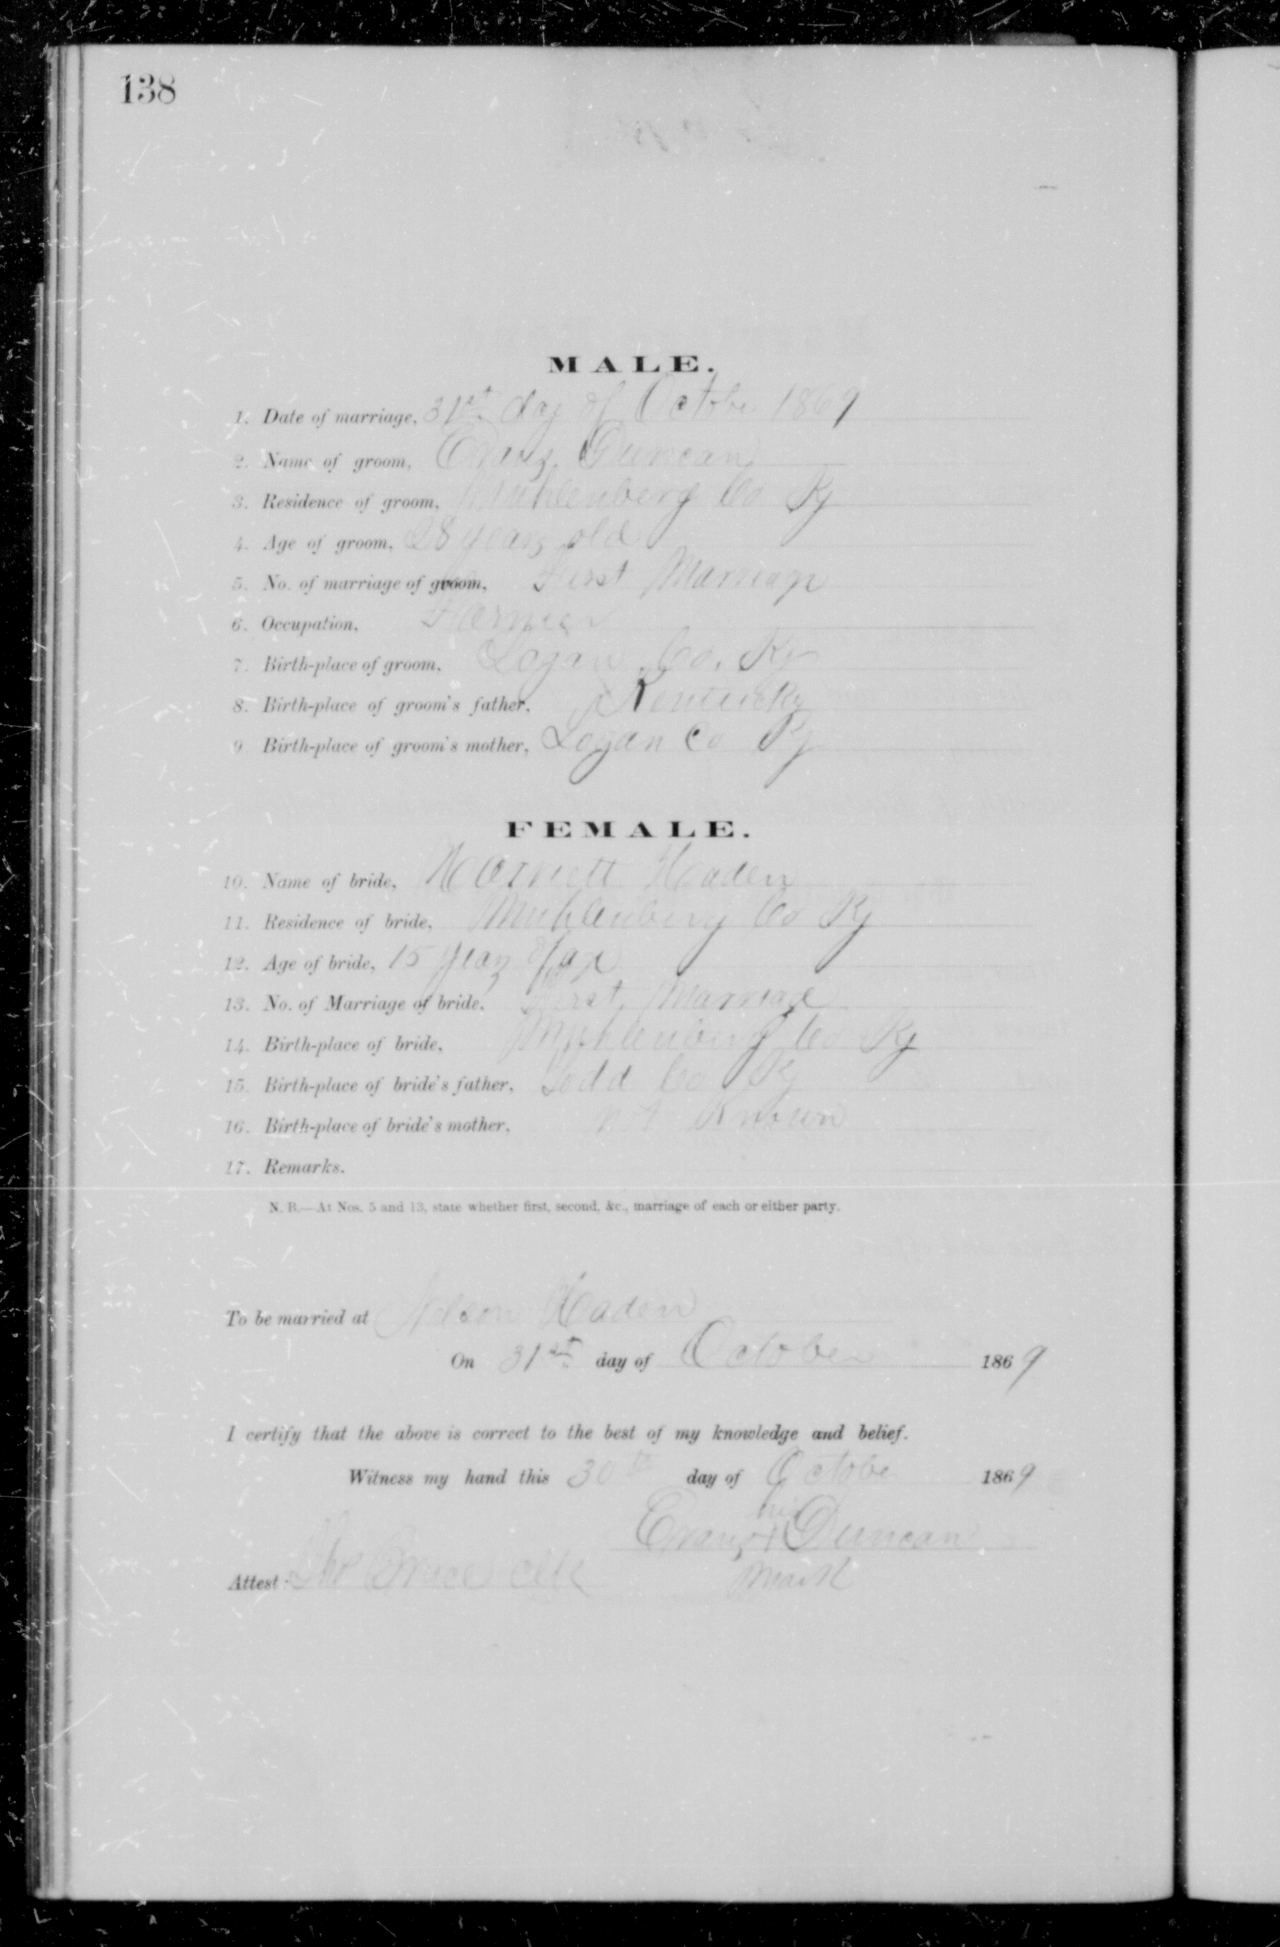 138
MALE.
1. Date of marriage, 31st day of Octobe 1869
2. Name of groom, Evans Duncan
3. Residence of groom, Muhlenberg Co Ky
4. Age of groom, 28 years old
5. No. of marriage of groom, First Marriage
6. Occupation, Farmer
7. Birth-place of groom, Logan Co. Ky
8. Birth-place of groom's father, Kentucky
9. Birth-place of groom's mother, Logan Co Ky
FEMALE.
10. Name of bride, Harriett Haden
11. Residence of bride, Muhlenberg Co Ky
12. Age of bride, 15 years of age
13. No. of Marriage of bride, First Marriage
14. Birth-place of bride, Muhlenberg Co Ky
15. Birth-place of bride's father, Todd Co Ky
16. Birth-place of bride's mother, not Known
17. Remarks.
N. B.—At Nos. 5 and 13, state whether first, second, &c., marriage of each or either party.
To be married at Nelson Haden
On 31st day of October 1869
I certify that the above is correct to the best of my knowledge and belief.
Witness my hand this 30th day of Octobe 1869
his
Evans X Duncan
Attest: Bruce Clk mark